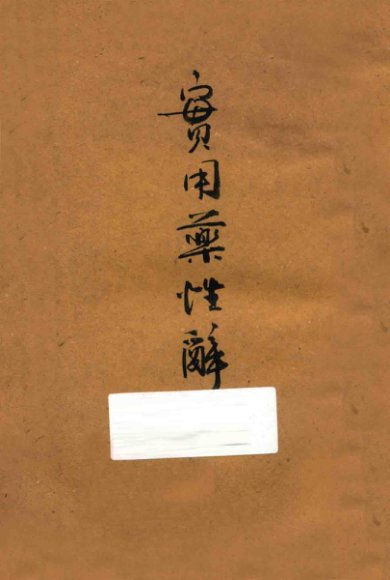 實用藥性辭